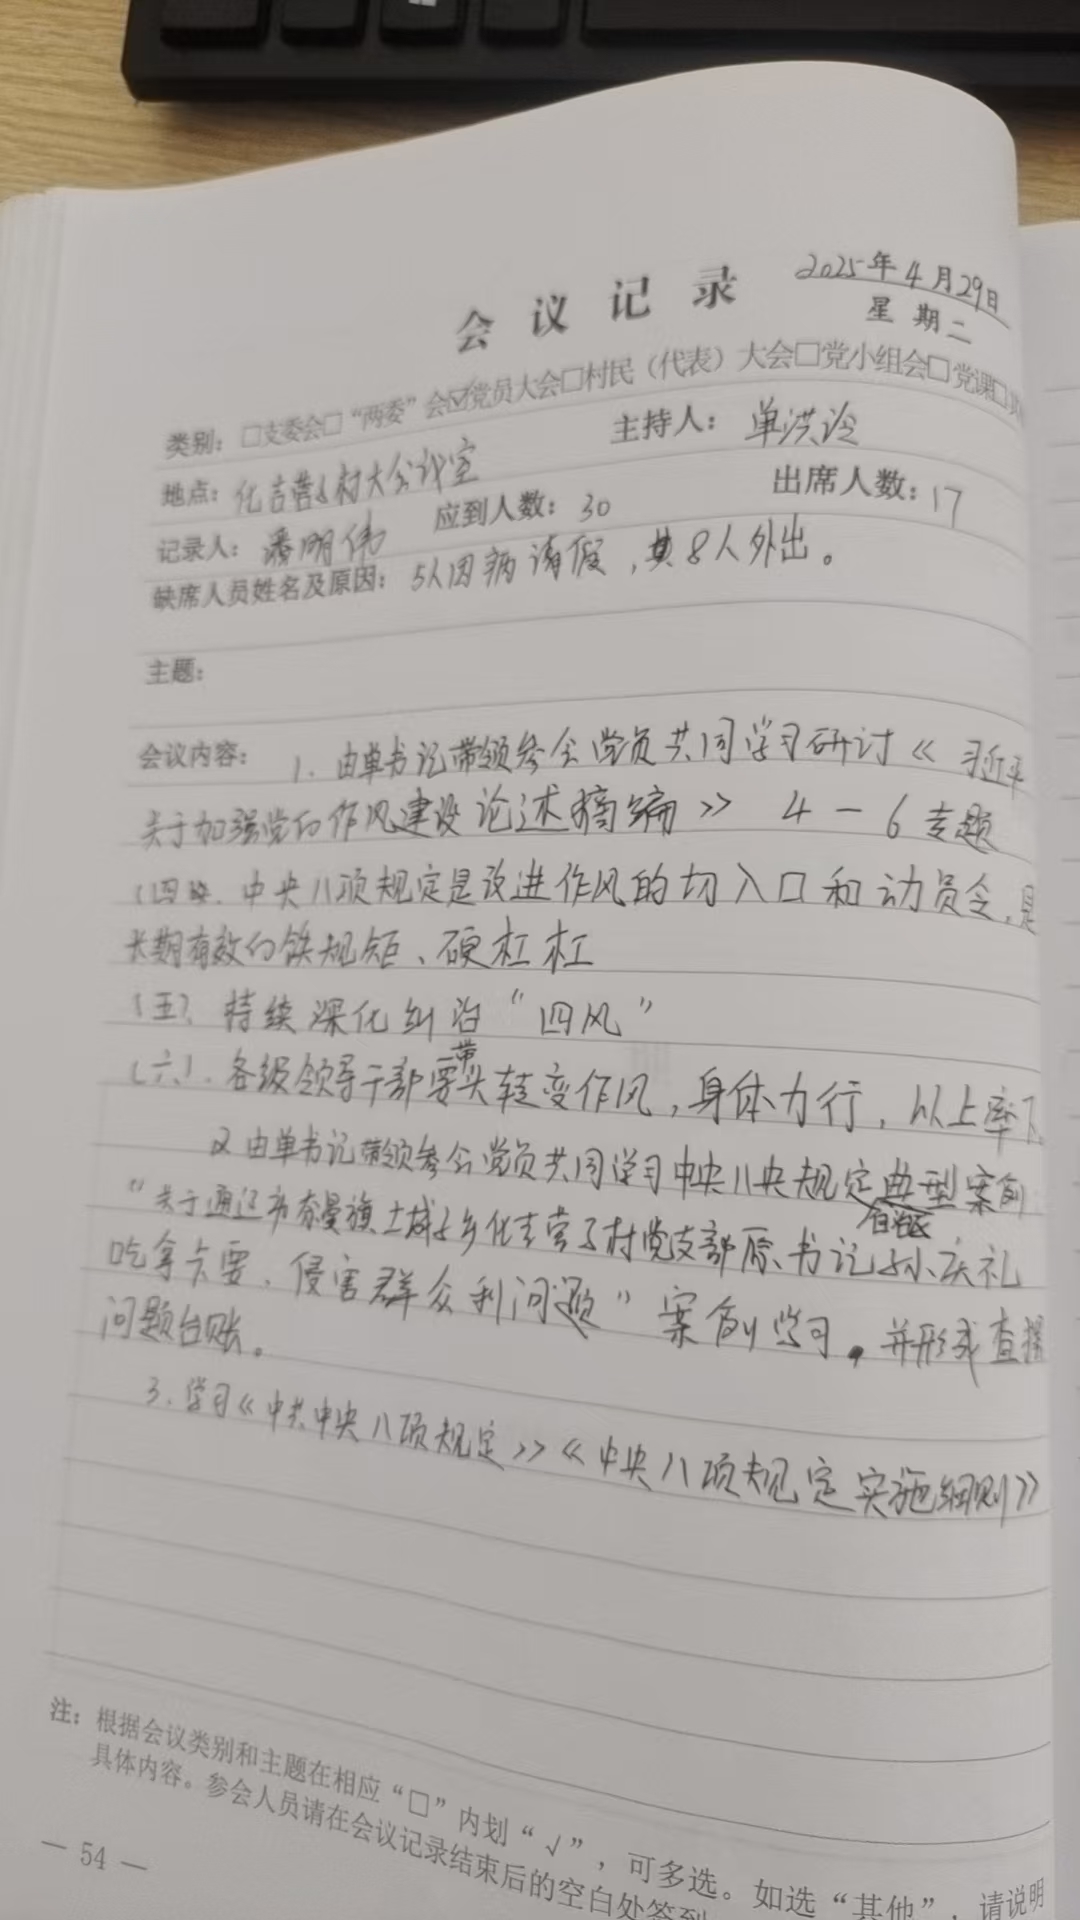 会议记录
2025年4月29日
星期二
类别：□支委会□“两委”会☑党员大会□村民（代表）大会□党小组会□党课□
地点：化吉营子村大会议室 主持人：单洪冷
记录人：潘明伟 应到人数：30 出席人数：17
缺席人员姓名及原因：5人因病请假，其8人外出。
主题：
会议内容：1、由单书记带领参会党员共同学习研讨《习近平
关于加强党的作风建设论述摘编》 4－6专题
（四）、中央八项规定是改进作风的切入口和动员令，是
长期有效的铁规矩、硬杠杠
（五）、持续深化纠治“四风”
（六）、各级领导干部要带头转变作风，身体力行，以上率下
2 由单书记带领参会党员共同学习中央八央规定典型案例
“关于通辽市奈曼旗土城子乡化吉营子村党支部原书记孙庆礼
吃拿卡要、侵害群众利问题”案例学习。并形成查摆
问题台账。
3、学习《中共中央八项规定》《中央八项规定实施细则》
注：根据会议类别和主题在相应“□”内划“√”，可多选。如选“其他”，请说明
具体内容。参会人员请在会议记录结束后的空白处签到
— 54 —